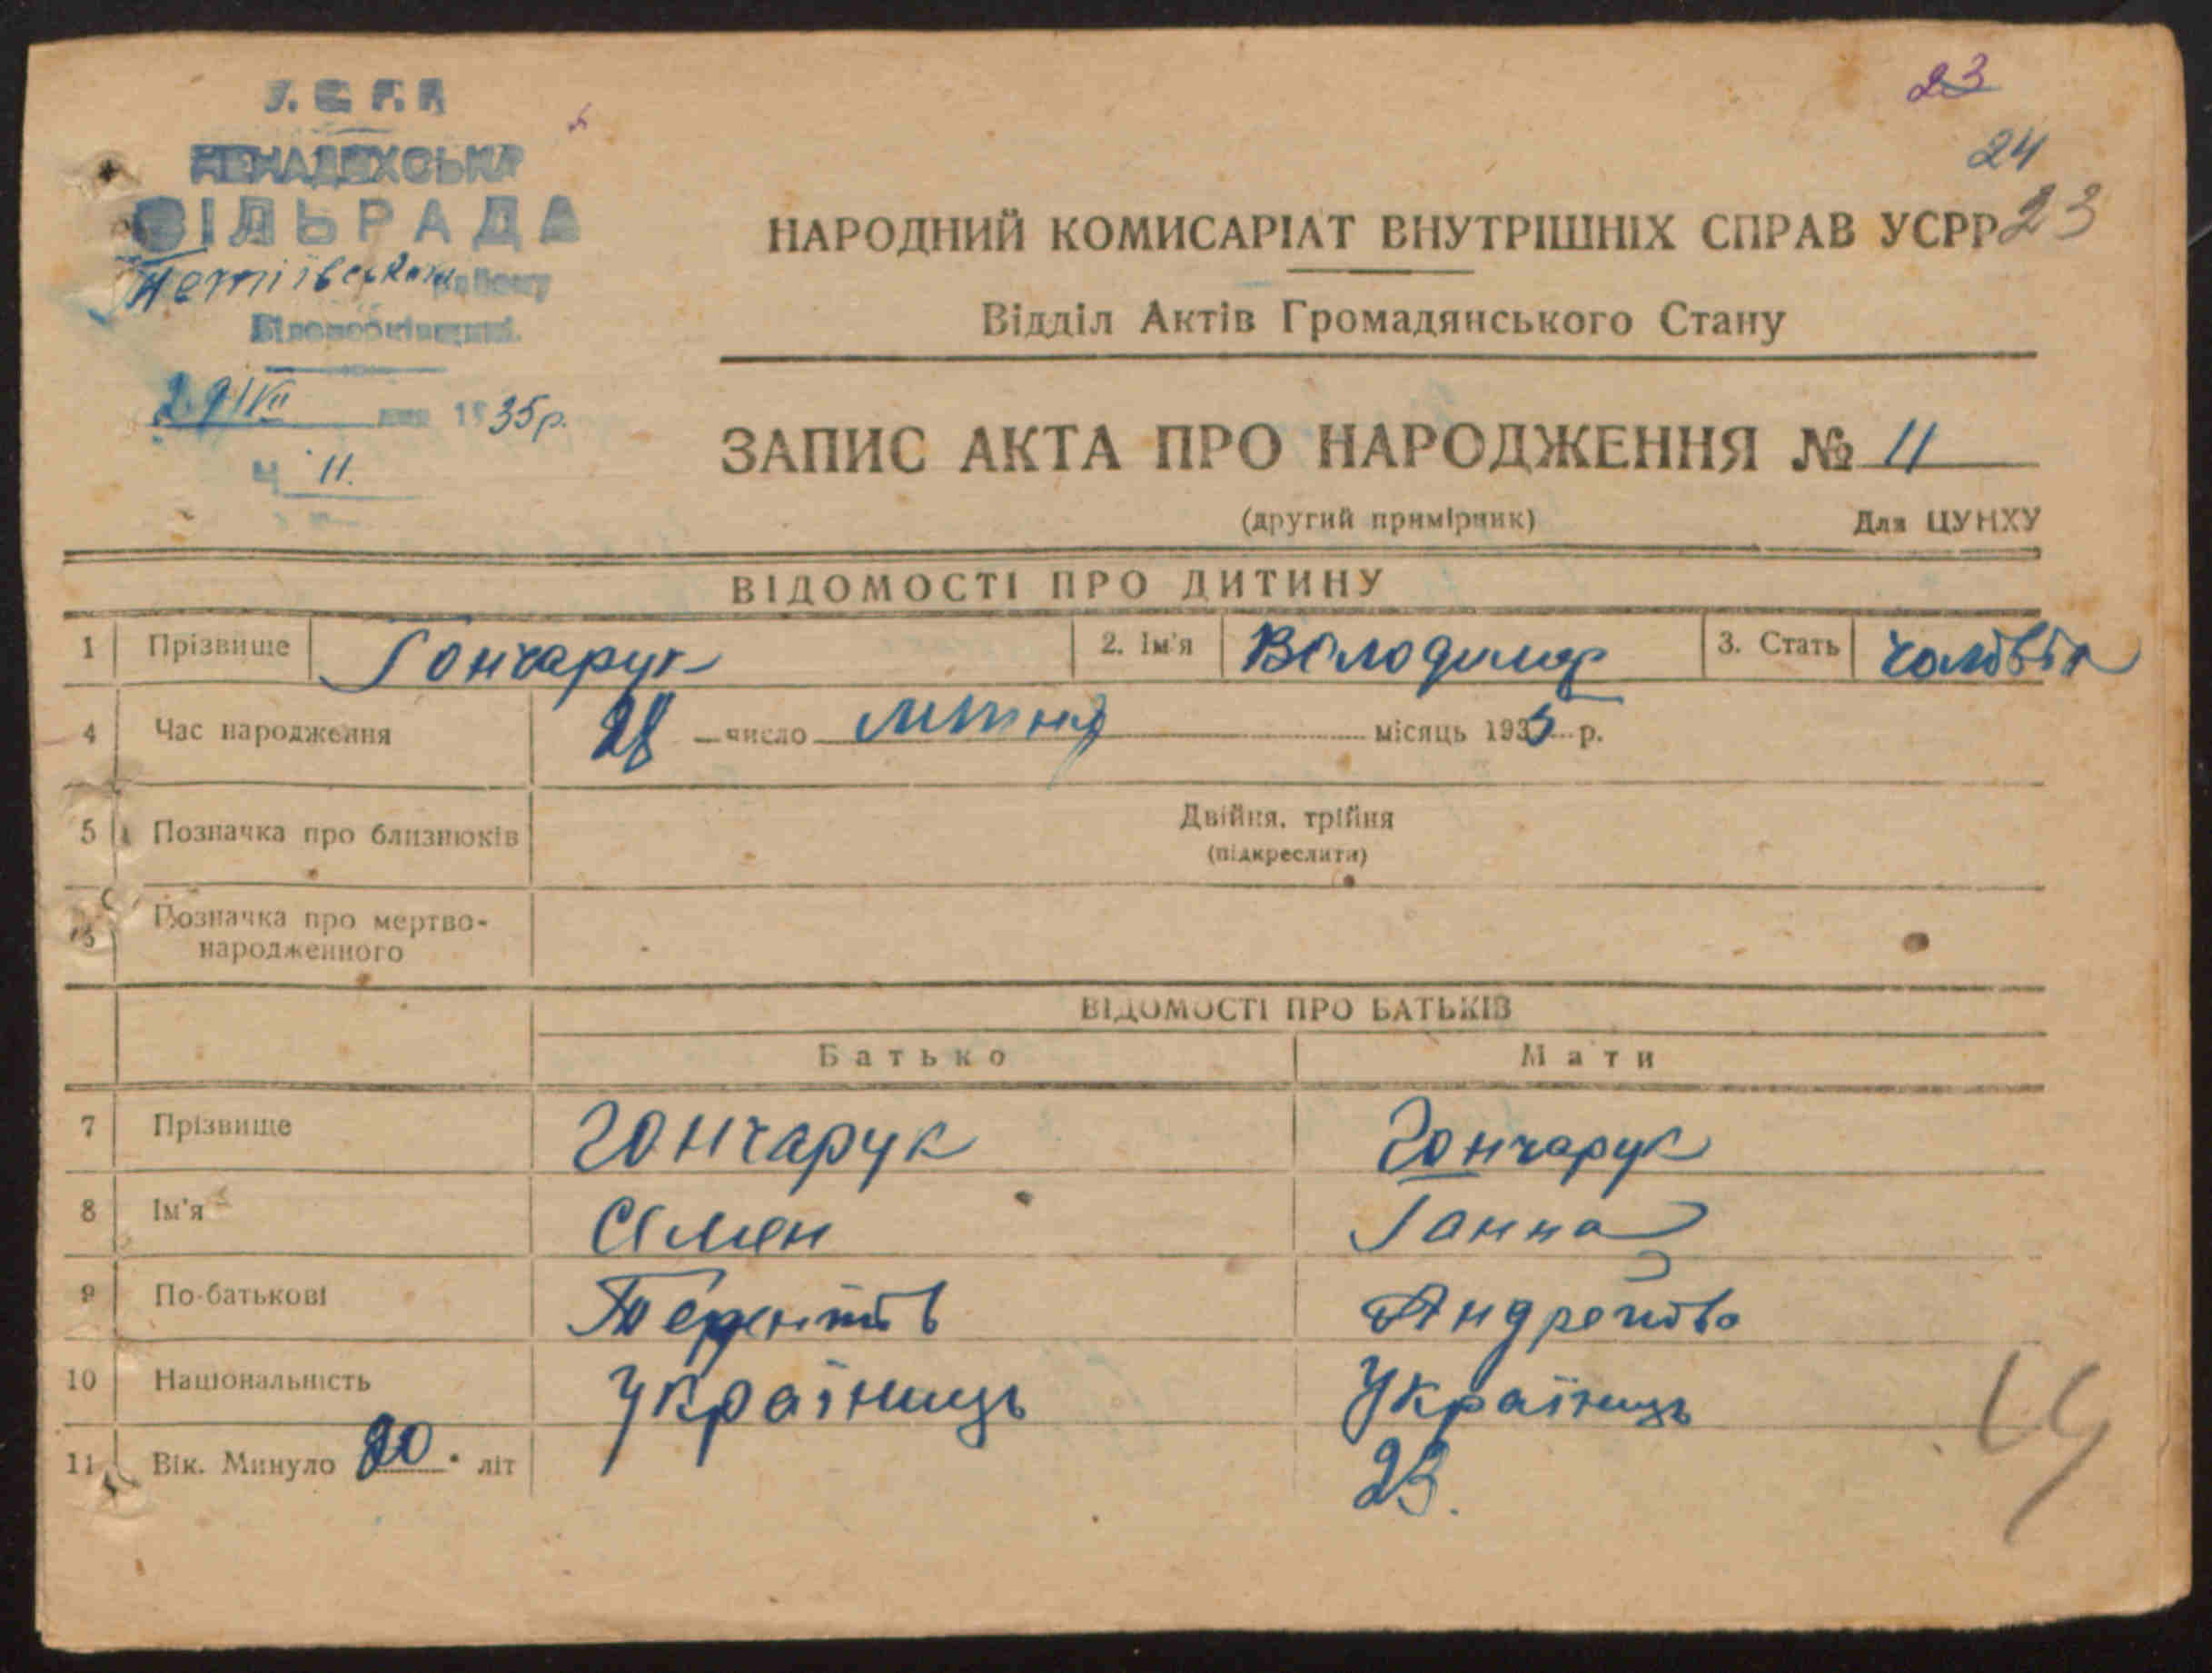 У. С. Р. Р.
НЕНАДИХСЬКА
СІЛЬРАДА
району
Білоцерківщині.
29/VII дня 1935р.
Ч 11.
23
24
23
НАРОДНИЙ КОМИСАРІАТ ВНУТРІШНІХ СПРАВ УСРР
Відділ Актів Громадянського Стану
ЗАПИС АКТА ПРО НАРОДЖЕННЯ № 11
(другий примірник) Для ЦУНХУ
ВІДОМОСТІ ПРО ДИТИНУ
1 Прізвище Гончарук 2. Ім'я Володимер 3. Стать чоловік
4 Час народження 28 число липня місяць 1935 р.
5 Позначка про близнюків Двійня, трійня
(підкреслити)
6 Позначка про мертво-
народженного
ВІДОМОСТІ ПРО БАТЬКІВ
Батько Мати
7 Прізвище Гончарук Гончарук
8 Ім'я Семен Ганна
9 По-батькові Терентів Андреївна
10 Національність Українець Українець
11 Вік. Минуло 20 літ 23.